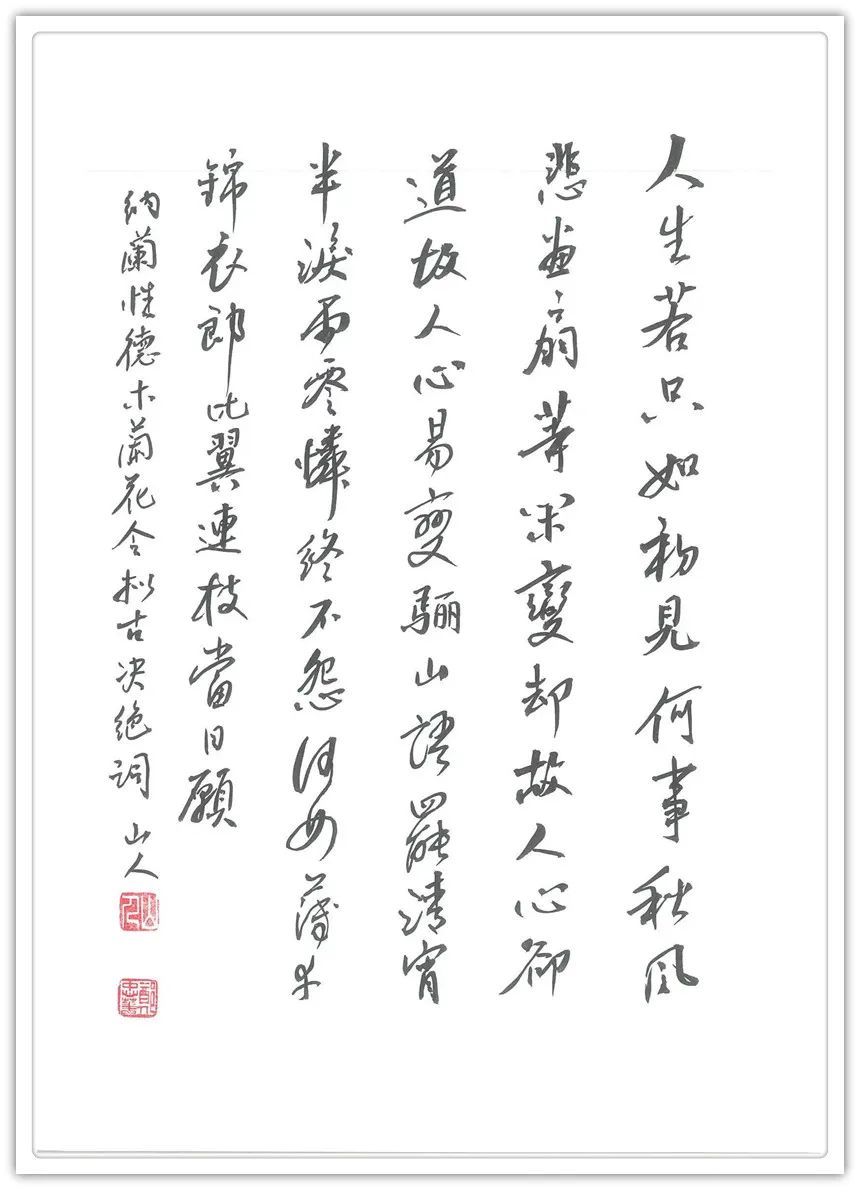 人生若只如初見何事秋風
悲畫扇等闲變却故人心卻
道故人心易變骊山語罷清宵
半淚雨零憐終不怨何如薄幸
錦衣郎比翼連枝當日願
納蘭性德木蘭花令拟古决絶詞 山人